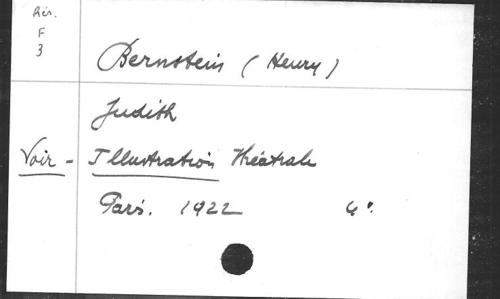 Rés.
F
3
Bernstein (Henry)
Judith
Voir - Illustration théâtrale
Paris. 1922 4°.